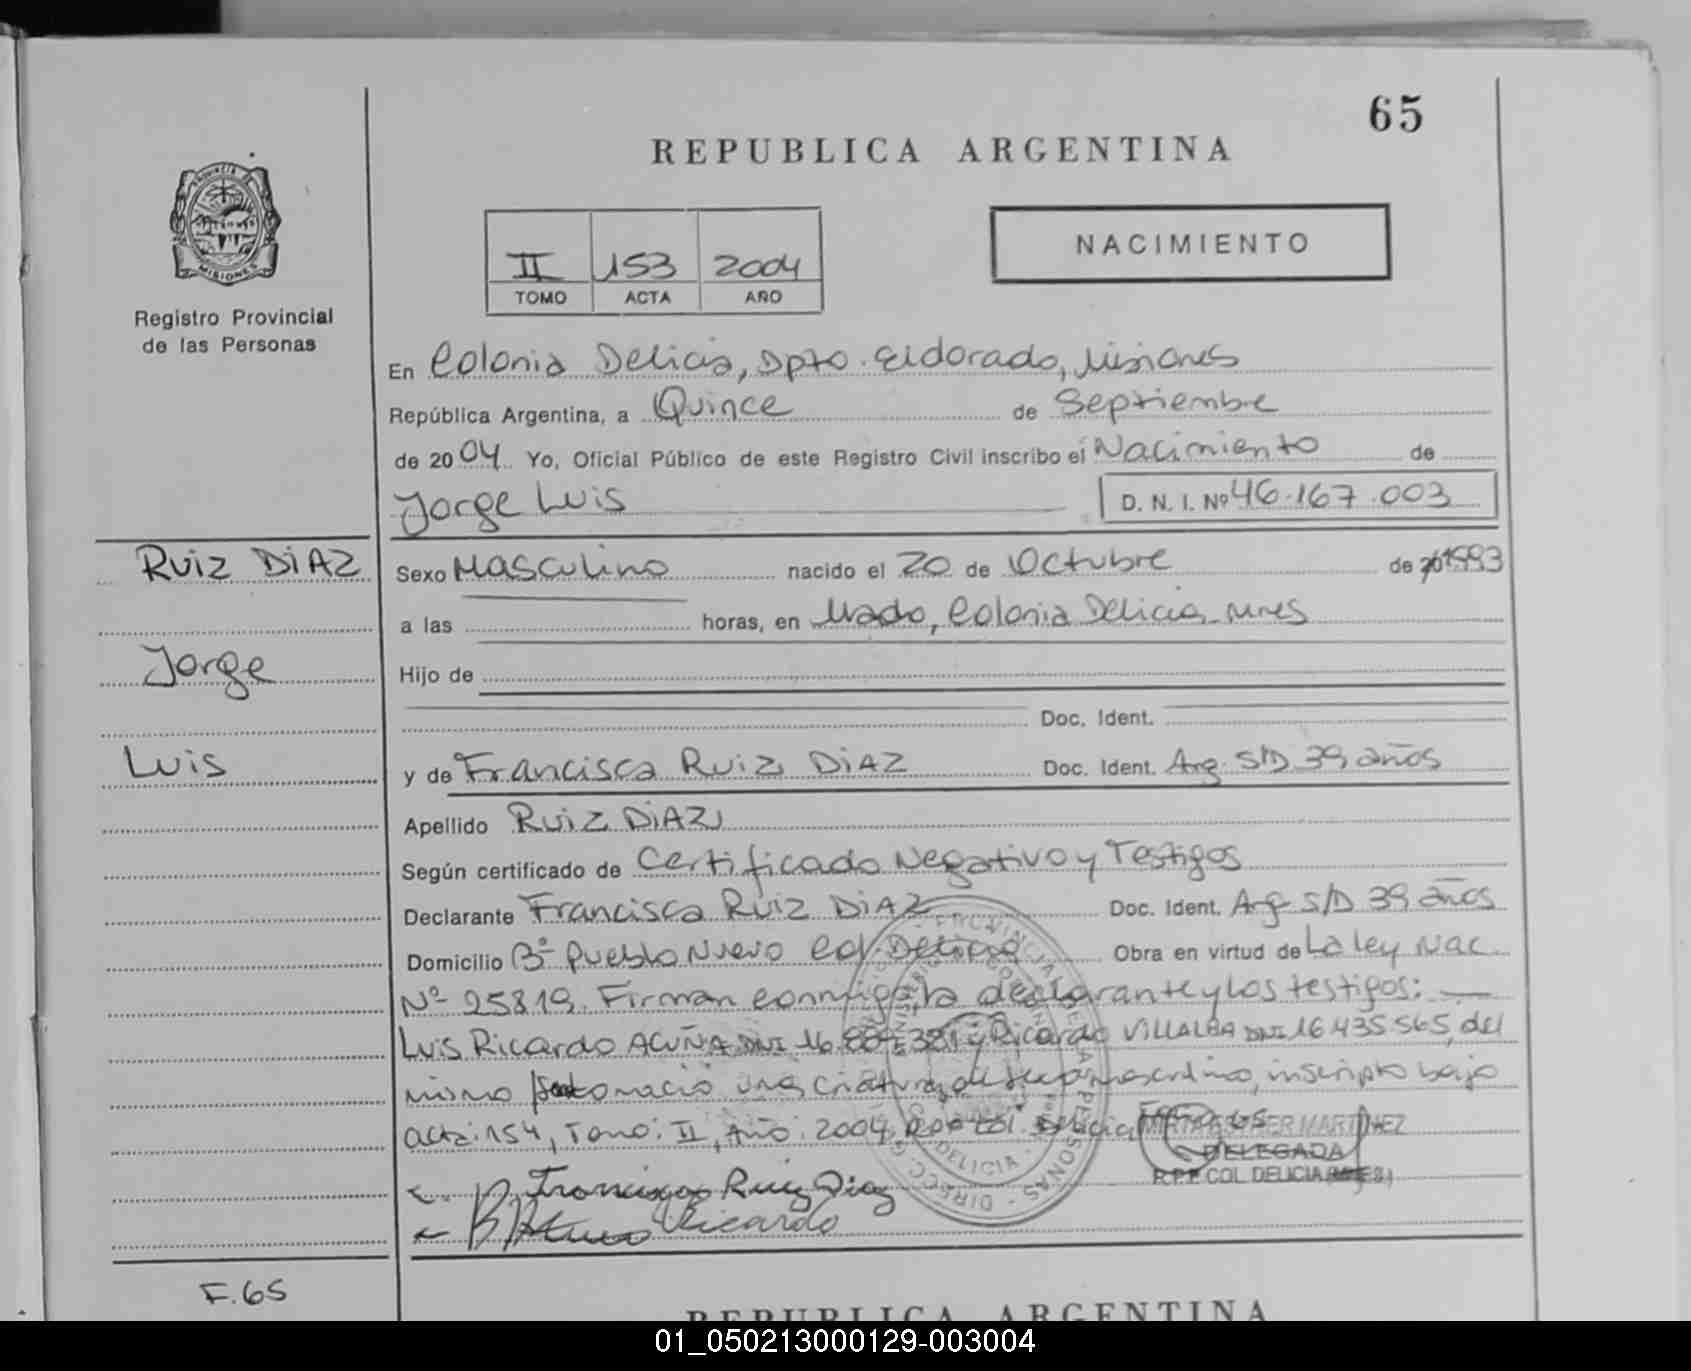 65
REPUBLICA ARGENTINA
PROVINCIA DE
MISIONES
Registro Provincial
de las Personas
II 153 2004
TOMO ACTA AÑO
NACIMIENTO
En Colonia Delicia, Dpto. Eldorado, Misiones
República Argentina, a Quince de Septiembre
de 2004 Yo, Oficial Público de este Registro Civil inscribo el Nacimiento de
Jorge Luis D. N. I. Nº 46.167.003
Ruiz DiAZ
Jorge
Luis
Sexo Masculino nacido el 20 de Octubre de 1993
a las horas, en Mado, Colonia Delicia, Mnes
Hijo de
Doc. Ident.
y de Francisca Ruiz DiAZ Doc. Ident. Arg. S/D 39 años
Apellido Ruiz DiAZ
Según certificado de Certificado Negativo y Testigos
Declarante Francisca Ruiz DiAZ Doc. Ident. Arg. S/D 39 años
Domicilio Bº Pueblo Nuevo Col. Delicia Obra en virtud de La ley Nac.
Nº 25819. Firman conmigo la declarante y los testigos:
Luis Ricardo ACUÑA DNI 16. 381 y Ricardo VILLALBA DNI 16.435.565, del
mismo nació una criatura de sexo masculino, inscripto bajo
acta: 154, Tomo: II, Año: 2004 Col. Delicia
MARTINEZ
DELEGADA
R.P.P. COL. DELICIA
Francisca Ruiz Diaz
Ricardo
F. 65
REPUBLICA ARGENTINA
01_050213000129-003004